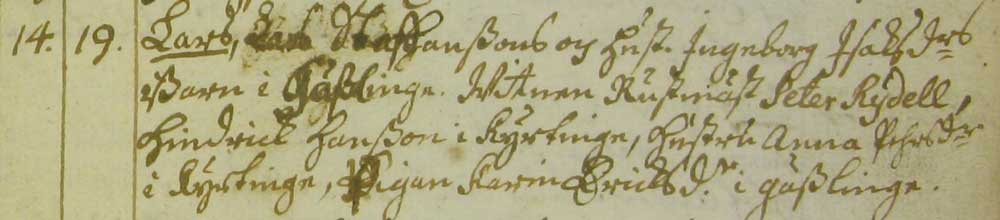 14. 19. Lars, Lars Staffanßons og Hust. Ingeborg Isaks drs
Barn i Gåßlinge. Witnen Rustmäst Peter Rydell,
Hindrick Hanßon i Kyrtinge, Hustru Anna Pehrs dr
i Kyrtinge, Pigan Karin Ericks d.r i gåßlinge.